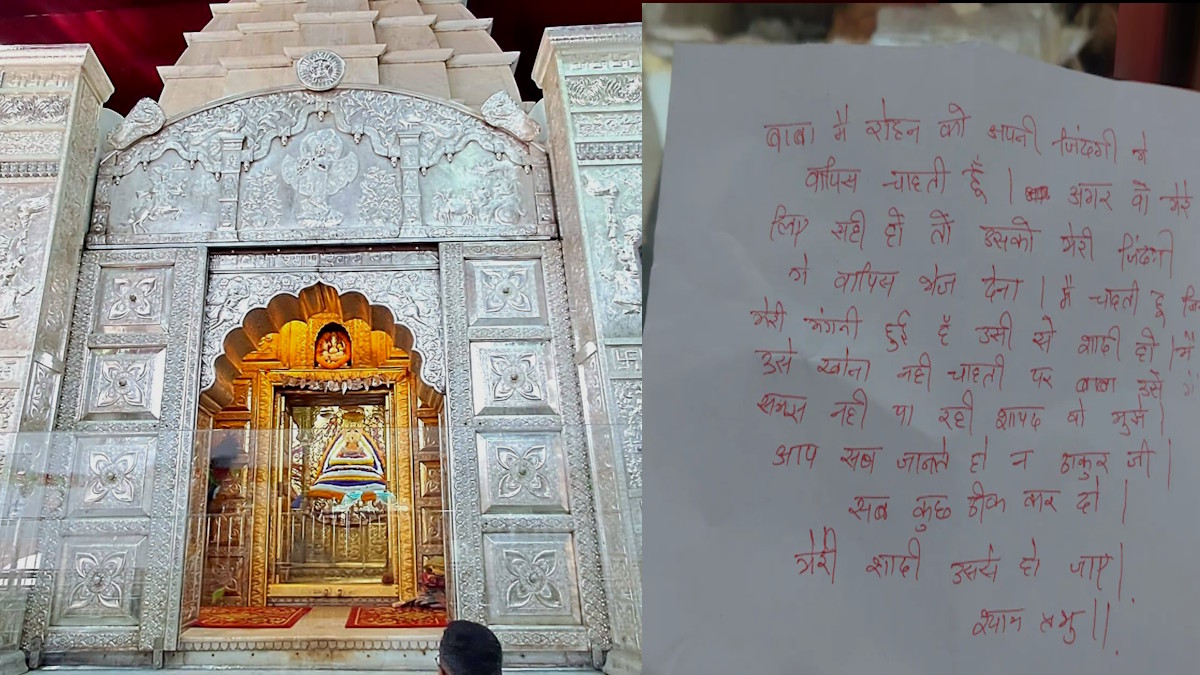 बाबा मै रोहन को अपनी जिंदगी मे
वापिस चाहती हूँ । अगर वो मेरे
लिए सही हो तो उसको मेरी जिंदगी
मे वापिस भेज देना । मै चाहती हू
मेरी मंगनी हुई है उसी से शादी हो ।
उसे खोना नही चाहती पर बाबा उसे
समझ नही पा रही शायद वो मुझे ।
आप सब जानते हो न ठाकुर जी ।
सब कुछ ठीक कर दो ।
मेरी शादी उससे हो जाए ।
श्याम प्रभु ।।